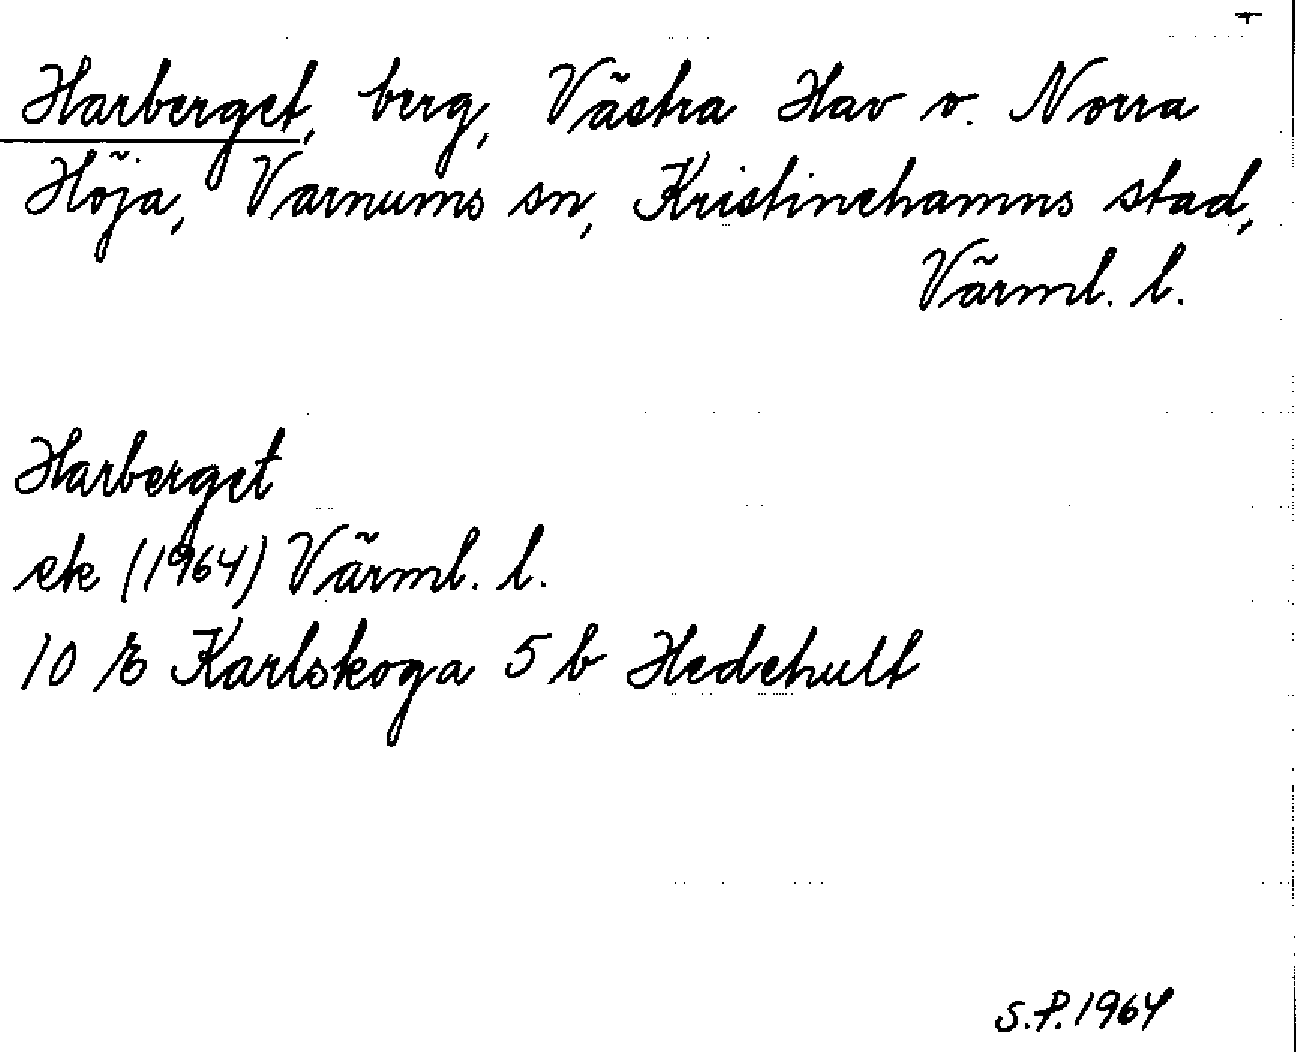 Harberget, berg, Västra Hav o. Norra
Höja, Varnums sn, Kristinehamns stad,
Värml. l.
Harberget
ek (1964) Värml. l.
10 E Karlskoga 5 b Hedehult
S.P. 1964